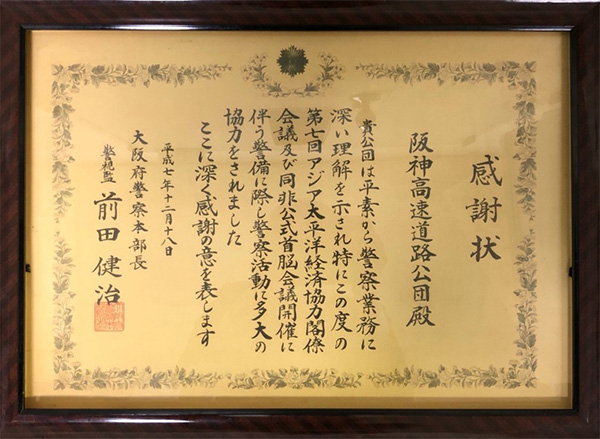 感謝状
阪神高速道路公団殿
貴公団は平素から警察業務に
深い理解を示され特にこの度の
第七回アジア太平洋経済協力閣僚
会議及び同非公式首脳会議開催に
伴う警備に際し警察活動に多大の
協力をされました
ここに深く感謝の意を表します
平成七年十二月十八日
大阪府警察本部長
警視監 前田健治